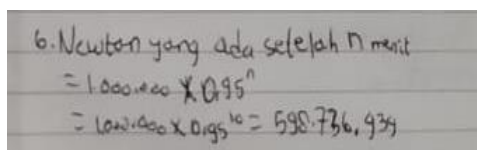 6. Newton yang ada setelah n menit
= 1.000.000 × 0,95ⁿ
= 1.000.000 × 0,95¹⁰ = 598.736,939